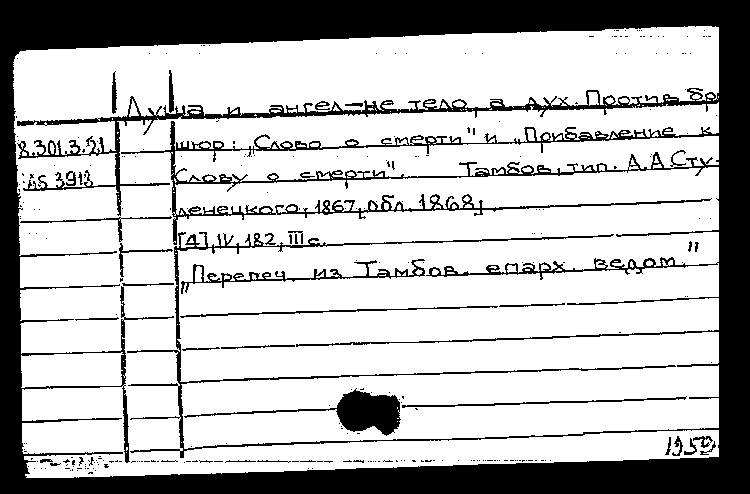 Душа и ангел-не тело, а дух. Против бро
8.301.3.21. шюр: „Слово о смерти" и „Прибавление к
Слову о смерти". Тамбов, тип. А.А.Сту-
денецкого, 1867, [обл. 1868].
[4], IV, 182, III с.
„Перепеч. из Тамбов. епарх. ведом."
1959